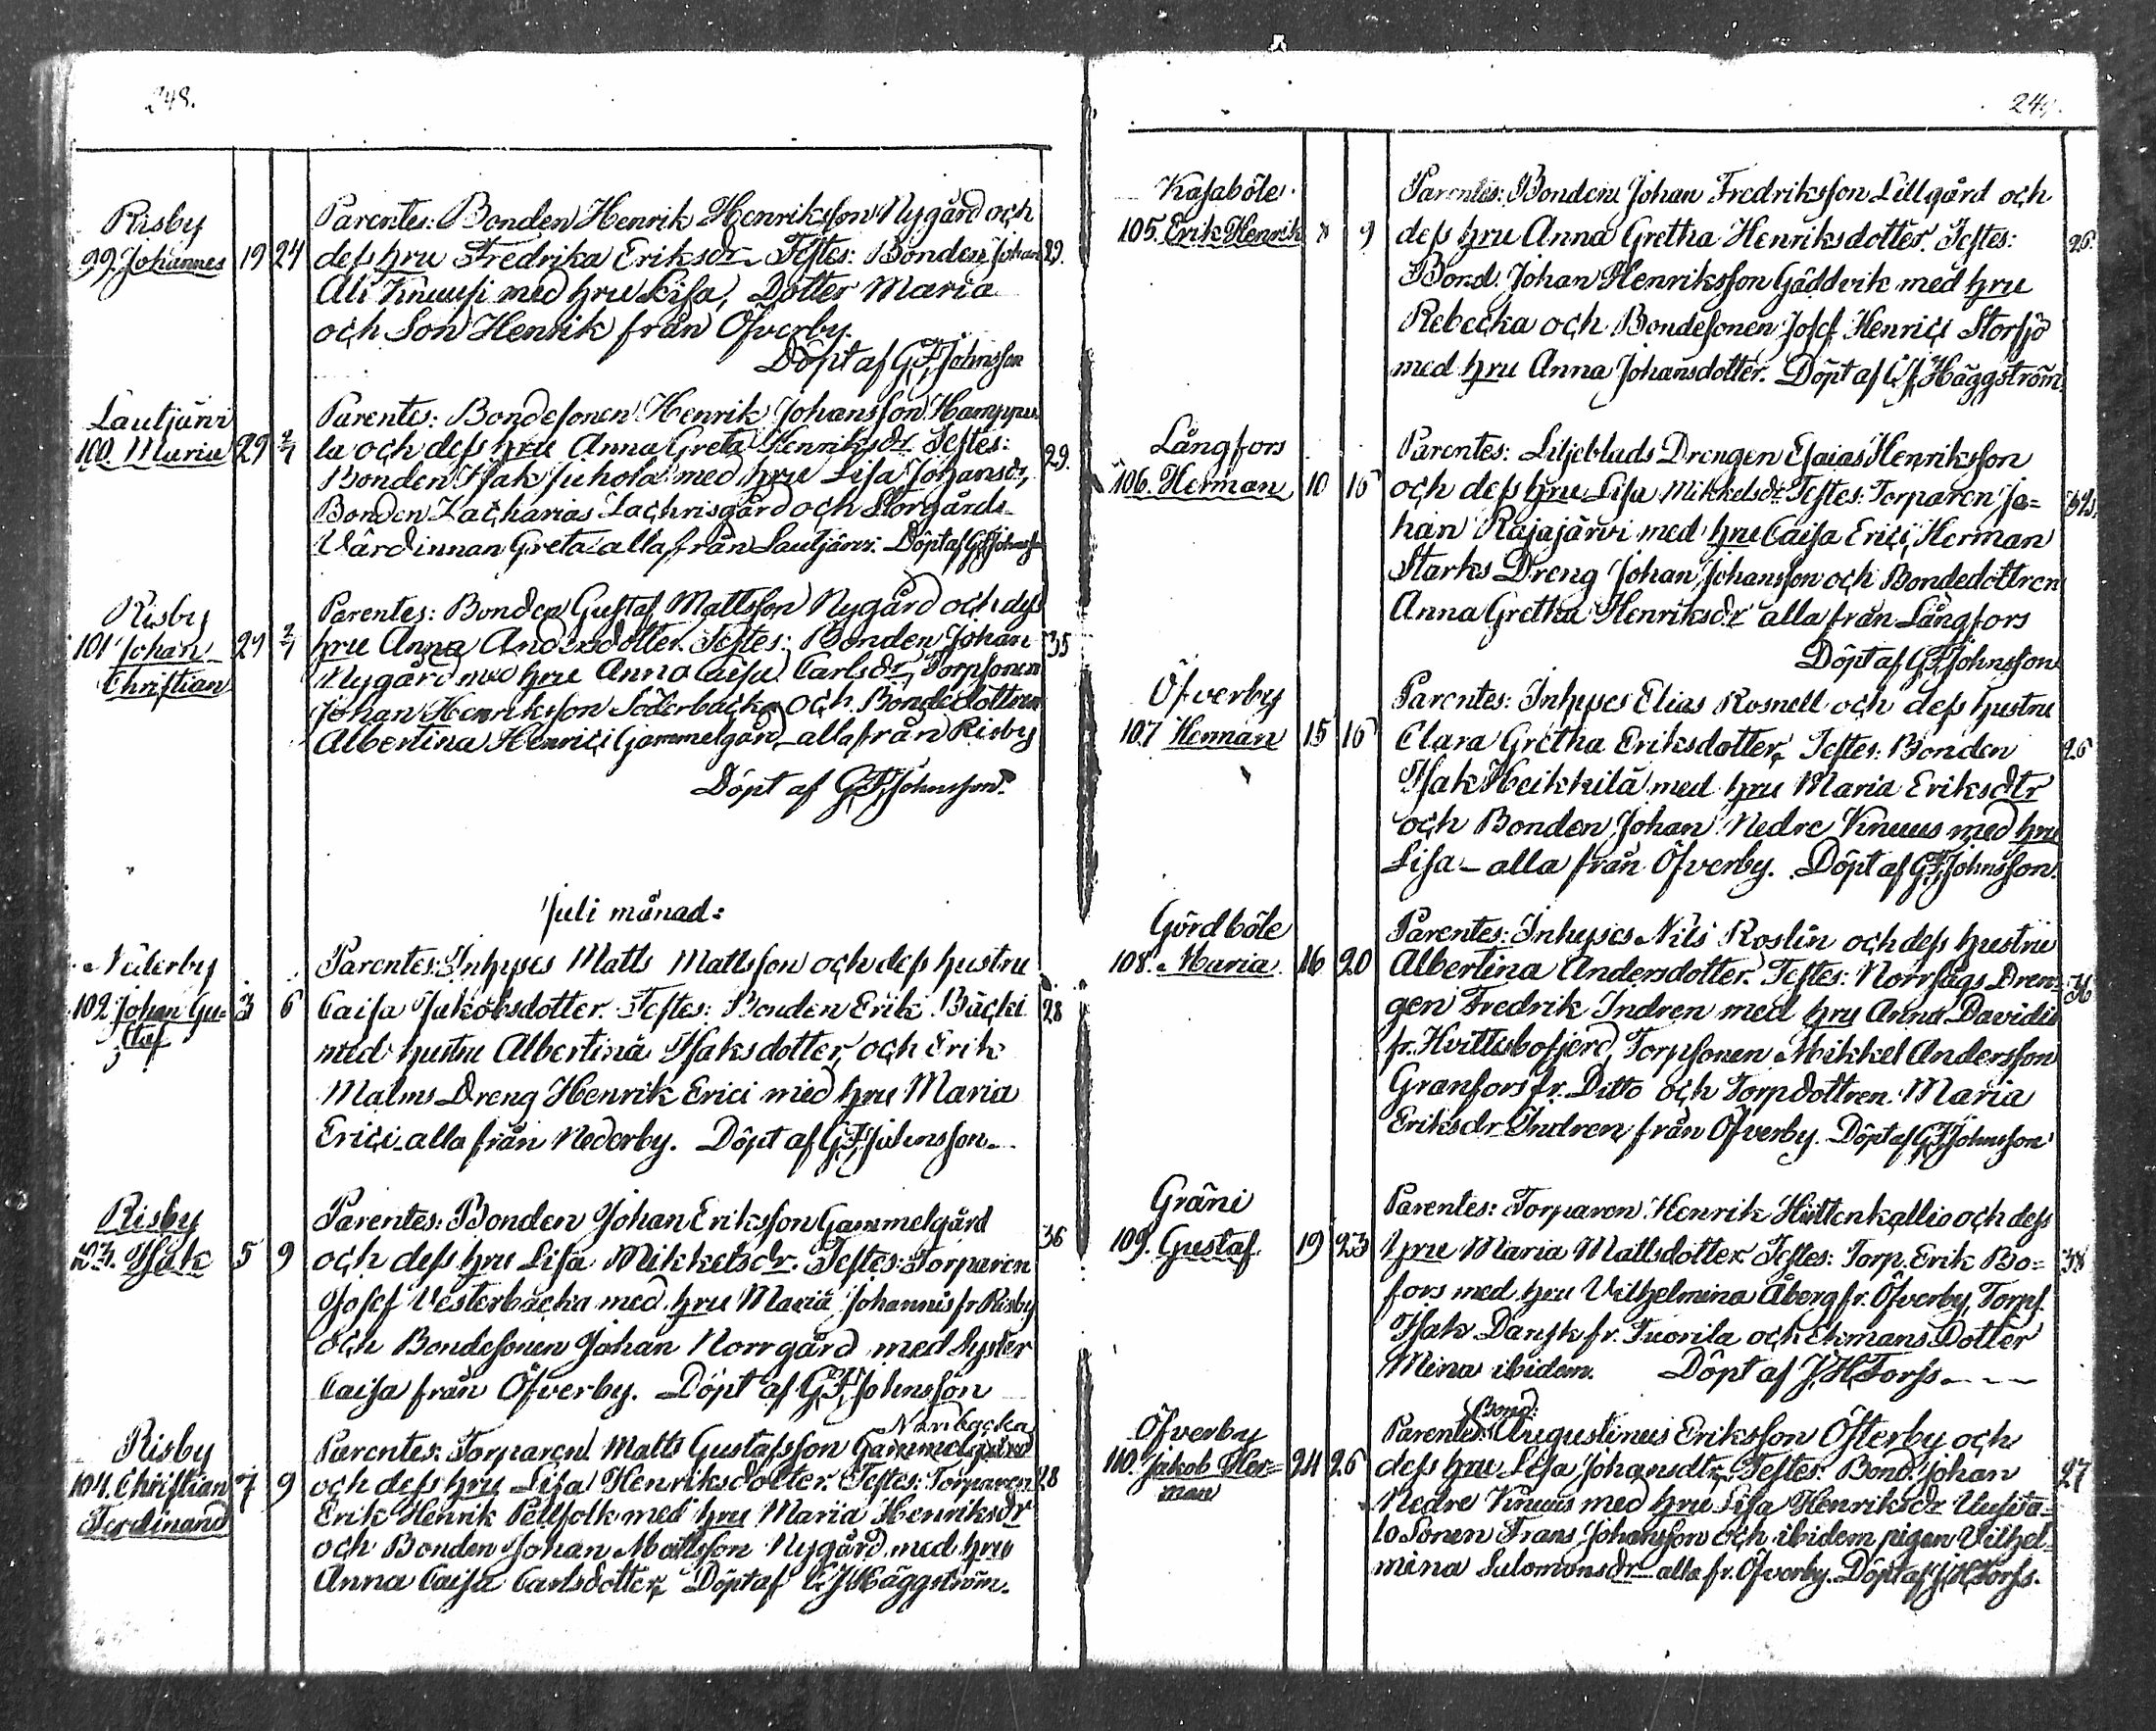 248.
Risby
99. Johannes 19 24
Parentes: Bonden Henrik Henriksson Nygård och
dess hru Fredrika Eriksdr Testes: Bonden Johan 29.
Ali Knuusi med hru Lisa, Dotter Maria
och Son Henrik från Öfverby.
Döpt af G.F. Johnsson
Lautjärvi
100. Maria 29 2/7
Parentes: Bondesonen Henrik Johansson Hamppu
la och dess hru Anna Greta Henriksdr Testes: 29.
Bonden Isak Juhola med hru Lisa Johansdr,
Bonden Zacharias Zachrisgård och Storgårds
Värdinnan Greta alla från Lautjärvi. Döpt af G.F. Johnsson
Risby
101 Johan
Christian 29 2/7
Parentes: Bonden Gustaf Mattsson Nygård och dess
hru Anna Andersdotter. Testes: Bonden Johan 35
Nygård med hru Anna Caisa Carlsdr, Torpsonen
Johan Henriksson Söderbacka och Bondedottren
Albertina Henrici Gammelgård alla från Risby
Döpt af G.F. Johnsson.
Juli månad:
Nederby
102 Johan Gu=
staf 3 6
Parentes: Inhyses Matts Mattsson och dess hustru
Caisa Jakobsdotter. Testes: Bonden Erik Bäcki 28
med hustru Albertina Isaksdotter, och Erik
Malms Dreng Henrik Erici med hru Maria
Erici alla från Nederby. Döpt af G.F. Johnsson
Risby
103. Isak 5 9
Parentes: Bonden Johan Eriksson Gammelgård
och dess hru Lisa Mikkelsdr. Testes: Torparen 36
Josef Vesterbacka med hru Maria Johannis fr. Risby
och Bondesonen Johan Norrgård med Syster
Caisa från Öfverby. Döpt af G.F. Johnsson
Risby
104. Christian
Ferdinand 7 9
Norrbacka
Parentes: Torparen Matts Gustafsson Gammelgård
och dess hru Lisa Henriksdotter. Testes: Torparen 28
Erik Henrik Pellfolk med hru Maria Henriksdr
och Bonden Johan Mattsson Nygård med hru
Anna Caisa Carlsdotter. Döpt af C.J. Häggström.
249.
Kasaböle.
105. Erik Henrik 8 9
Parentes: Bonden Johan Fredriksson Lillgård och
dess hru Anna Gretha Henriksdotter. Testes: 26.
Bond. Johan Henriksson Gäddvik med hru
Rebecka och Bondesonen Josef Henrici Storsjö
med hru Anna Johansdotter. Döpt af C.J. Häggström
Långfors
106. Herman 10 16
Parentes: Liljeblads Drengen Esaias Henriksson
och dess hru Lisa Mikkelsdr. Testes: Torparen Jo=
han Rajajärvi med hru Caisa Erici, Herman
Starks Dreng Johan Johansson och Bondedottren
Anna Gretha Henriksdr alla från Långfors
Döpt af G.F. Johnsson
Öfverby
107 Herman 15 16
Parentes: Inhyses Elias Rosnell och dess hustru
Clara Gretha Eriksdotter, Testes: Bonden 26
Isak Heikkilä med hru Maria Eriksdtr
och Bonden Johan Nedre Knuus med hru
Lisa – alla från Öfverby. Döpt af G.F. Johnsson.
Gärdböle
108. Maria. 16 20
Parentes: Inhyses Nils Roslin och dess hustru
Albertina Andersdotter. Testes: Norrsägs Dren= 36
gen Fredrik Indren med hru Anna Davidis
fr. Hvittisbofjerd, Torpsonen Mikkel Andersson
Granfors fr. Ditto och Torpdottren Maria
Eriksdr Indren från Öfverby. Döpt af G.F. Johnsson
Gräni
109. Gustaf. 19 23
Parentes: Torparen Henrik Hiittenkallio och dess
hru Maria Mattsdotter Testes: Torp. Erik Bo= 38
fors med hru Vilhelmina Åberg fr. Öfverby, Torps.
Isak Dansk fr. Tuorila och Ekmans Dotter
Mina ibidem. Döpt af J.H. Forss
Öfverby
110. Jakob Her=
man 24 26
Bond:
Parentes: Augustinus Eriksson Österby och
dess hru Lisa Johansdtr. Testes: Bond. Johan 27
Nedre Knuus med hru Lisa Henriksdr Uusita=
lo Sonen Frans Johansson och ibidem pigan Vilhel=
mina Salomonsdr alla fr. Öfverby. Döpt af J.H. Forss.